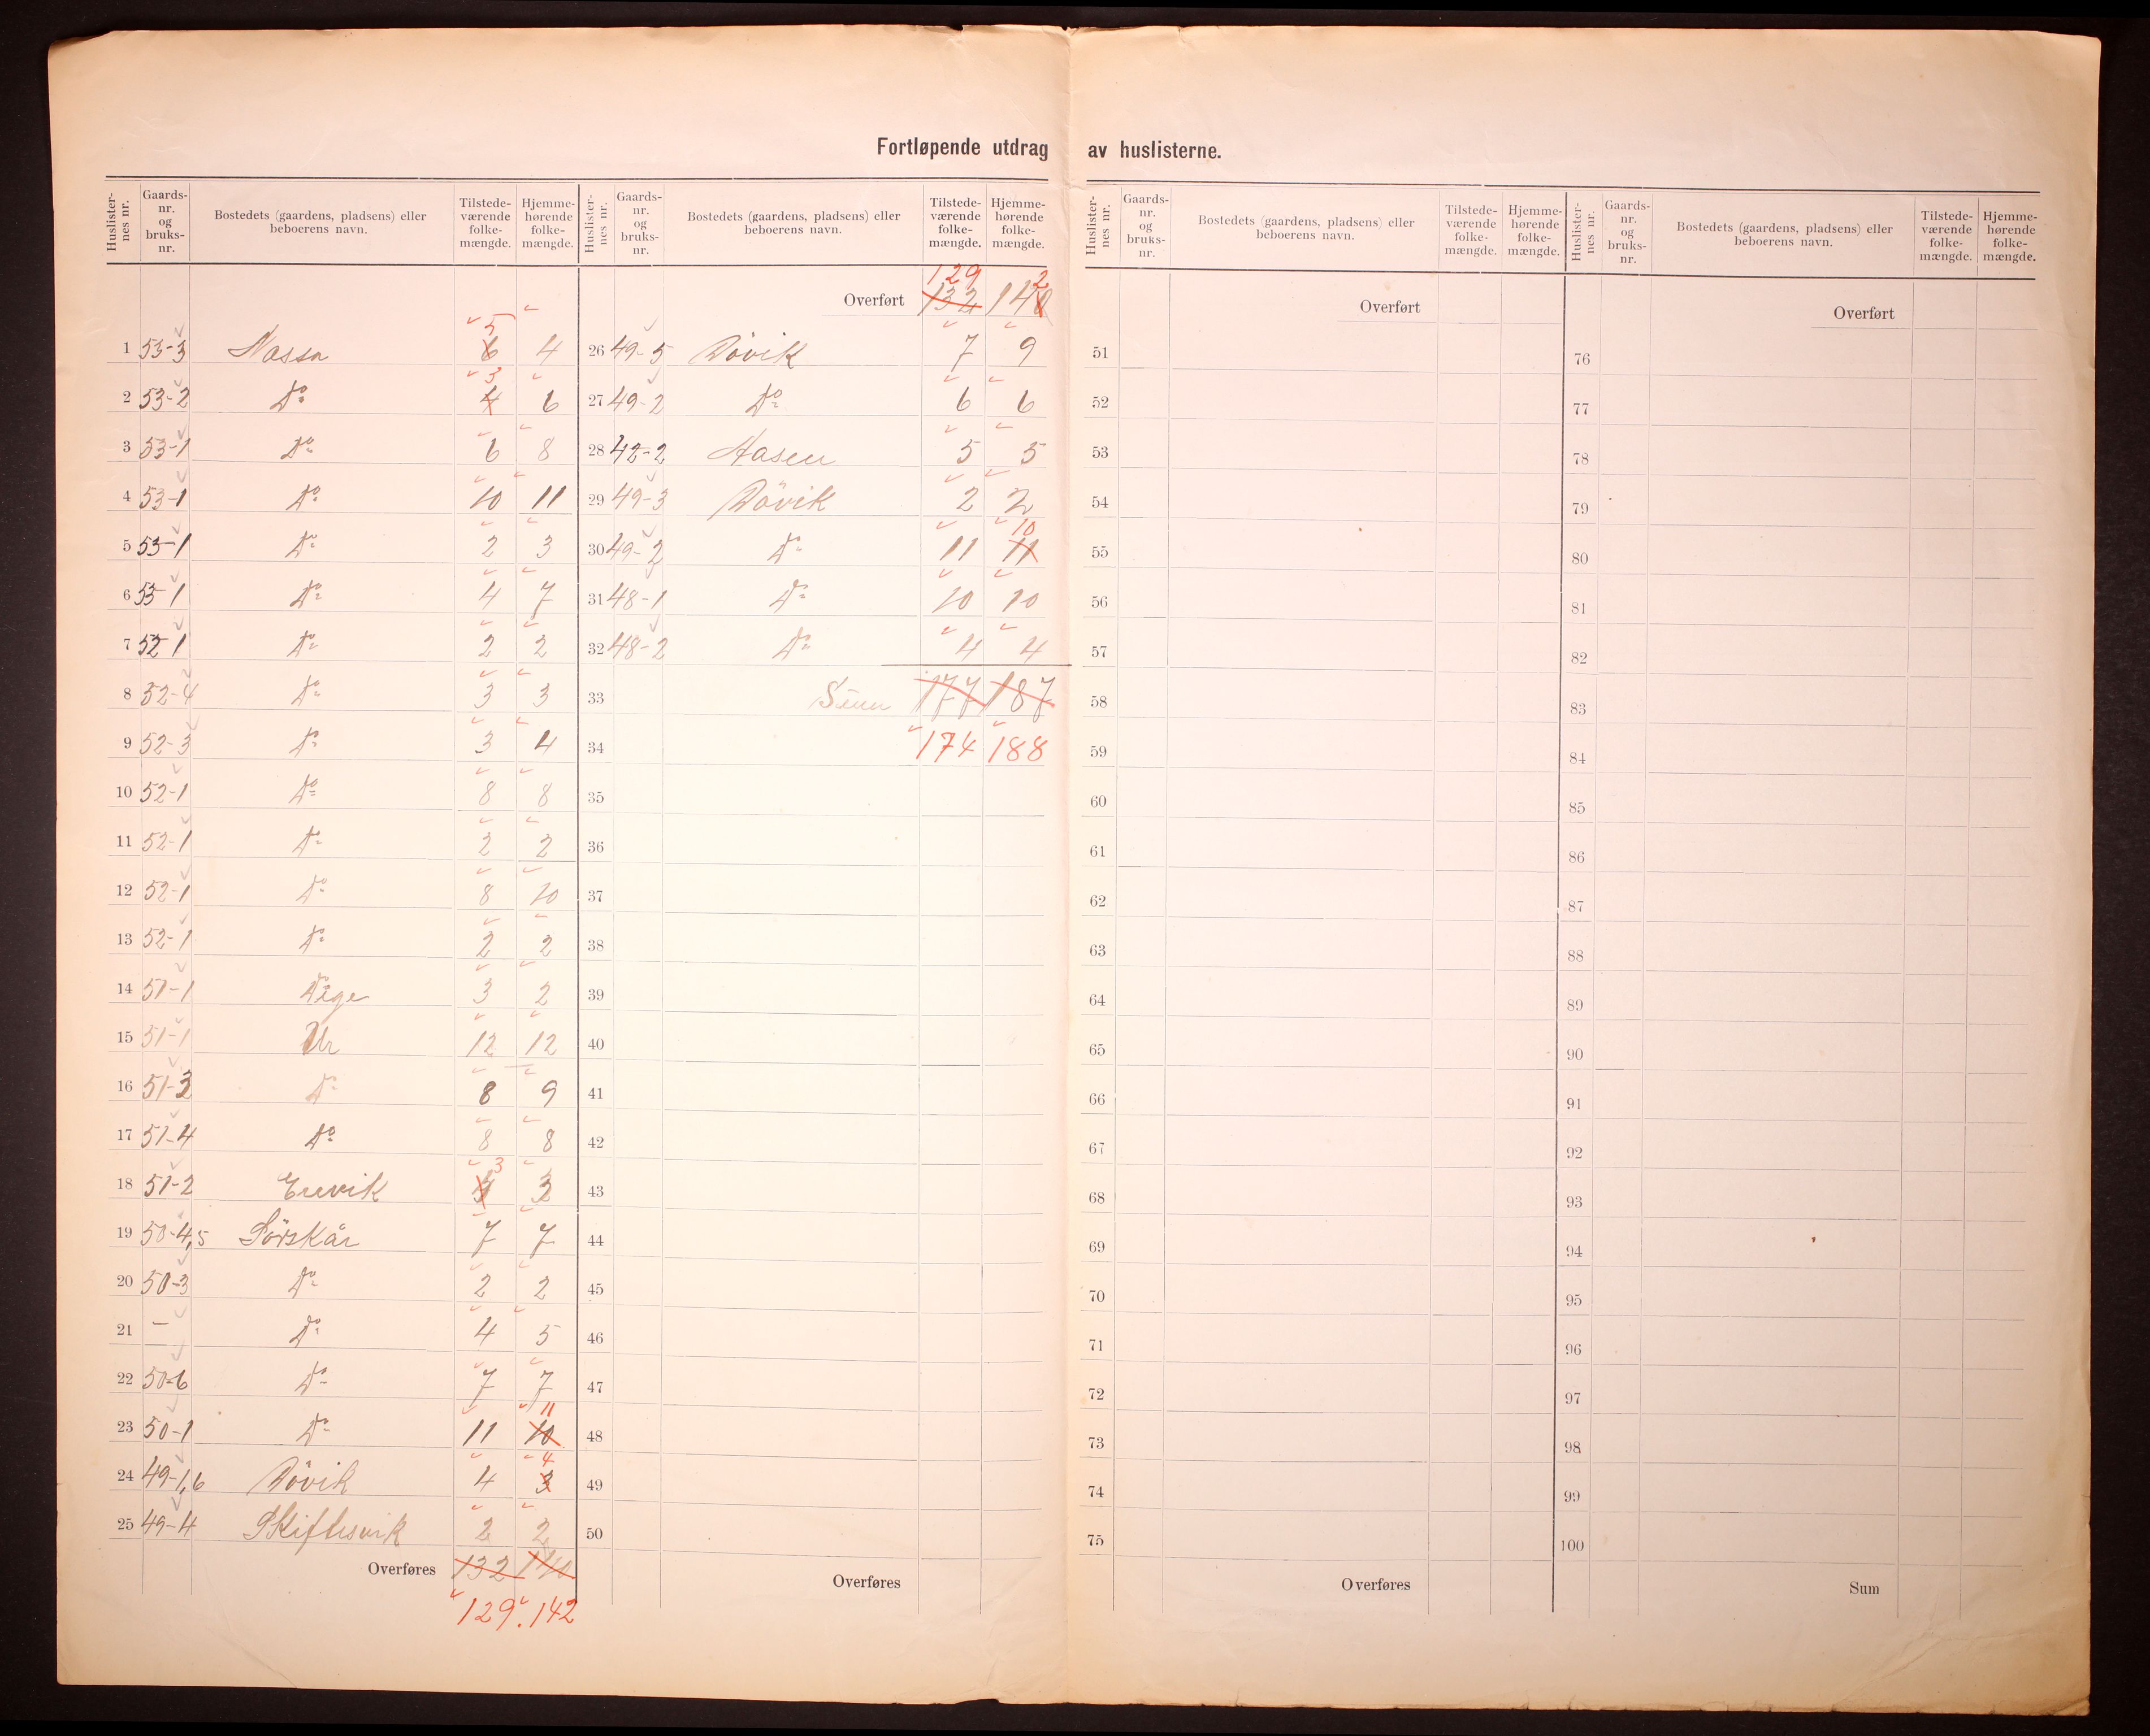 Fortløpende utdrag av huslisterne.
Huslister-nes nr. Gaards-nr. og bruks-nr. Bostedets (gaardens, pladsens) eller beboerens navn. Tilstede-værende folke-mængde. Hjemme-hørende folke-mængde.
1 53-3 Nassa 6 5 4
2 53-2 Do 4 3 6
3 53-1 Do 6 8
4 53-1 Do 10 11
5 53-1 Do 2 3
6 53-1 Do 4 7
7 52-1 Do 2 2
8 52-4 Do 3 3
9 52-3 Do 3 4
10 52-1 Do 8 8
11 52-1 Do 2 2
12 52-1 Do 8 10
13 52-1 Do 2 2
14 51-1 3 2
15 51-1 Ur 12 12
16 51-3 Do 8 9
17 51-4 Do 8 8
18 51-2 Ervik 4 3 3
19 50-4,5 Sörskår 7 7
20 50-3 Do 2 2
21 — Do 4 5
22 50-6 Do 7 7
23 50-1 Do 11 10 11
24 49-1,6 Dövik 4 3 4
25 49-4 Skiftesvik 2 2
Overføres 132 140
129. 142
Huslister-nes nr. Gaards-nr. og bruks-nr. Bostedets (gaardens, pladsens) eller beboerens navn. Tilstede-værende folke-mængde. Hjemme-hørende folke-mængde.
129 2
Overført 132 140
26 49-5 Dövik 7 9
27 49-2 Do 6 6
28 42-2 Aasen 5 5
29 49-3 Dövik 2 2
30 49-2 Do 11 11 10
31 48-1 Do 10 10
32 48-2 Do 4 4
33 Sum 177 187
34 174 188
35
36
37
38
39
40
41
42
43
44
45
46
47
48
49
50
Overføres
Huslister-nes nr. Gaards-nr. og bruks-nr. Bostedets (gaardens, pladsens) eller beboerens navn. Tilstede-værende folke-mængde. Hjemme-hørende folke-mængde.
Overført
51
52
53
54
55
56
57
58
59
60
61
62
63
64
65
66
67
68
69
70
71
72
73
74
75
Overføres
Huslister-nes nr. Gaards-nr. og bruks-nr. Bostedets (gaardens, pladsens) eller beboerens navn. Tilstede-værende folke-mængde. Hjemme-hørende folke-mængde.
Overført
76
77
78
79
80
81
82
83
84
85
86
87
88
89
90
91
92
93
94
95
96
97
98
99
100
Sum